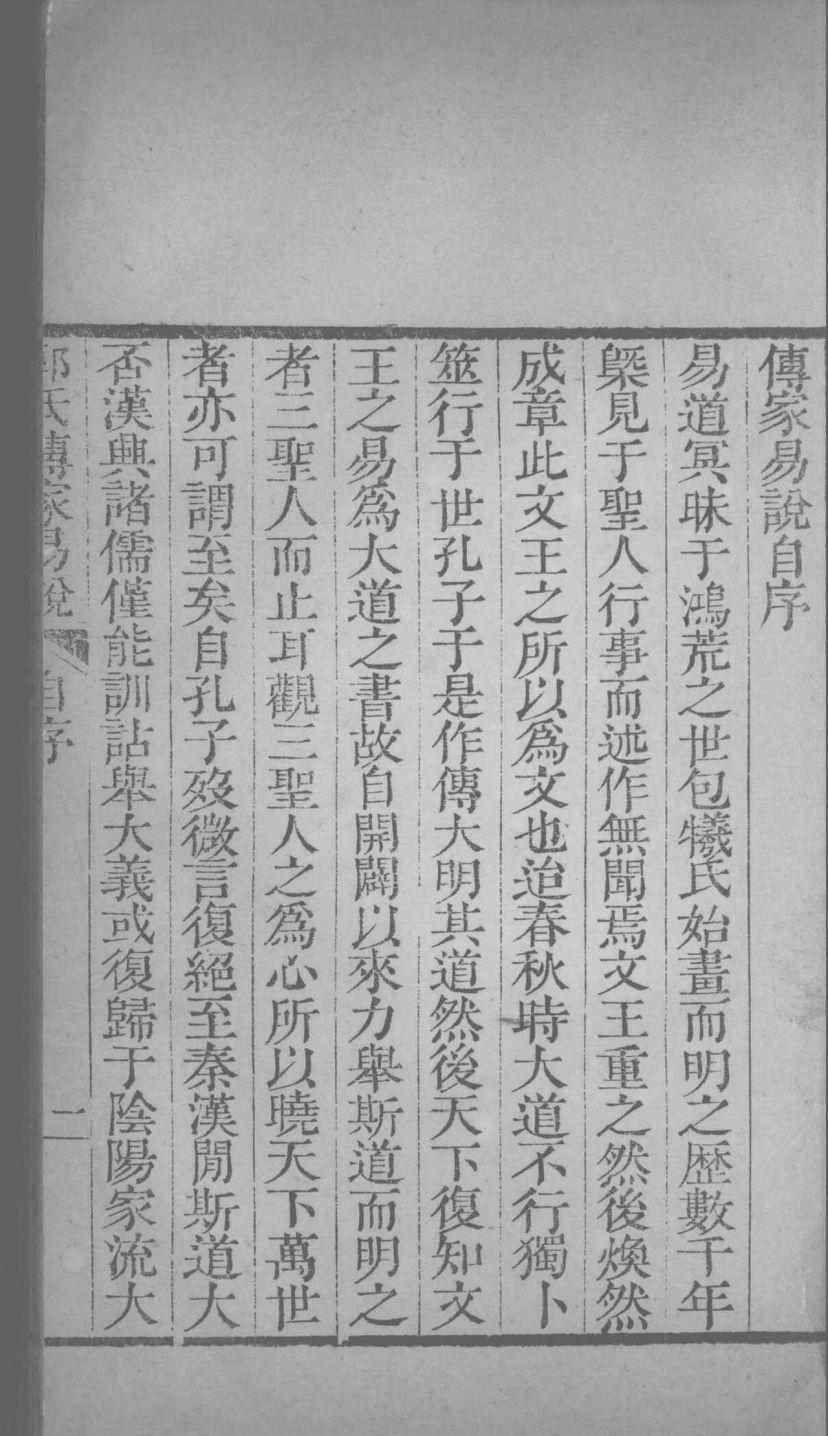 傳家易說自序
易道冥昧于鴻荒之世包犧氏始畫而明之歷數千年
槩見于聖人行事而述作無聞焉文王重之然後煥然
成章此文王之所以爲文也迨春秋時大道不行獨卜
筮行于世孔子于是作傳大明其道然後天下復知文
王之易爲大道之書故自開闢以來力舉斯道而明之
者三聖人而止耳觀三聖人之爲心所以曉天下萬世
者亦可謂至矣自孔子歿微言復絕至秦漢閒斯道大
否漢興諸儒僅能訓詁舉大義或復歸于陰陽家流大
郭氏傳家易說 自序 二